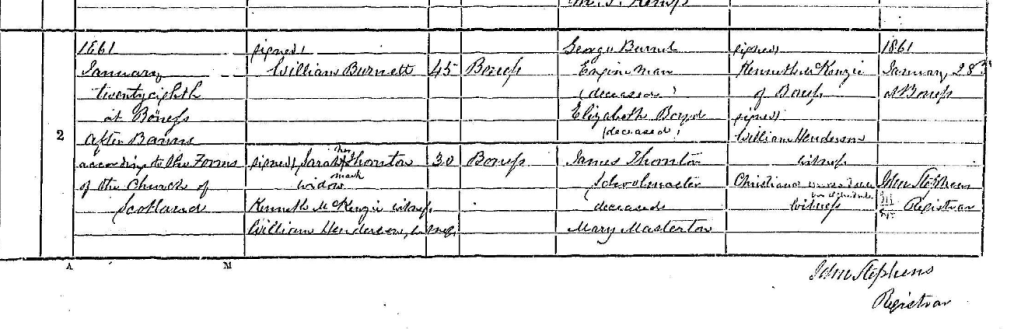 1861
January
twenty eighth
at Boness
After Banns
according to the Forms
of the Church of
Scotland
2
signed
William Burnett
signed Sarah Thornton
her
mark
widow
Kenneth McKenzie witness
William Henderson, witness
45
30
Boness
Boness
George Burnett
Engine man
(deceased)
Elizabeth Boyd
(deceased)
James Thornton
Schoolmaster
deceased
Mary Masterton
signed
Kenneth McKenzie
of Boness
signed
William Henderson
witness
Christiana
witness
1861
January 28th
at Boness
John Stephens
Registrar
A
M
John Stephens
Registrar